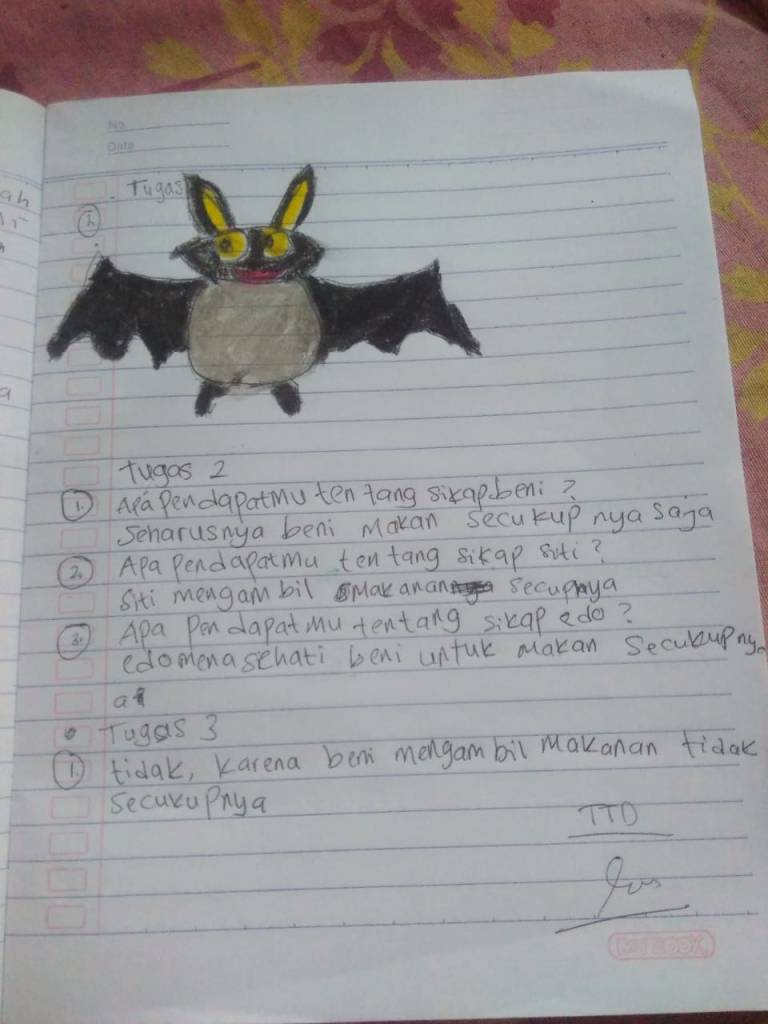 No.
Date
Tugas
1.
Tugas 2
1. Apa pendapatmu tentang sikap beni?
Seharusnya beni makan secukupnya saja
2. Apa pendapatmu tentang sikap siti?
Siti mengambil makanan secupnya
3. Apa pendapatmu tentang sikap edo?
edo menasehati beni untuk makan secukupny
a
Tugas 3
1. tidak, karena beni mengambil makanan tidak
secukupnya
TTD
ah
a